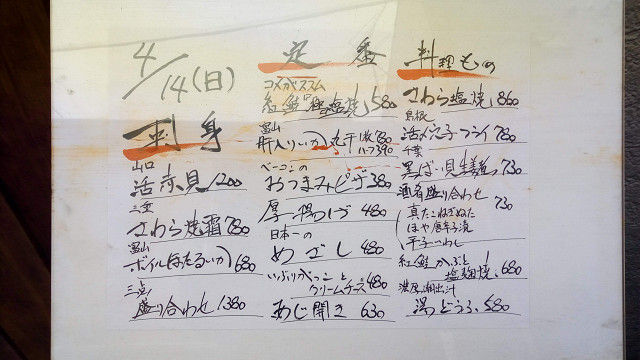 4/14(日)
刺身
山口
活赤貝 1200
三重
さわら焼霜 780
富山
ボイルほたるいか 680
三点!
盛り合わせ 1380
定番
コメがススム
紅鮭 塩焼 580
富山
肝入りいか丸干 1枚780
ハーフ390
ベーコンの
おつまみピザ 380
厚揚げ 480
日本一の
めざし 480
いぶりがっこと
クリームチーズ 480
あじ開き 630
料理もの
さわら塩焼 860
島根
活〆穴子フライ 780
千葉
黒ばい貝 730
酒肴盛り合わせ 730
真だこねぎぬた
ほや唐辛子漬
平子いわし
紅鮭かぶと
塩麹焼 680
濃厚潮出汁
湯どうふ 580